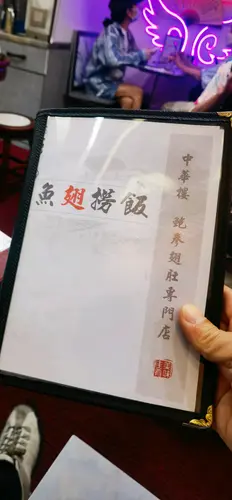 魚翅撈飯
中華樓 鮑參翅肚專門店